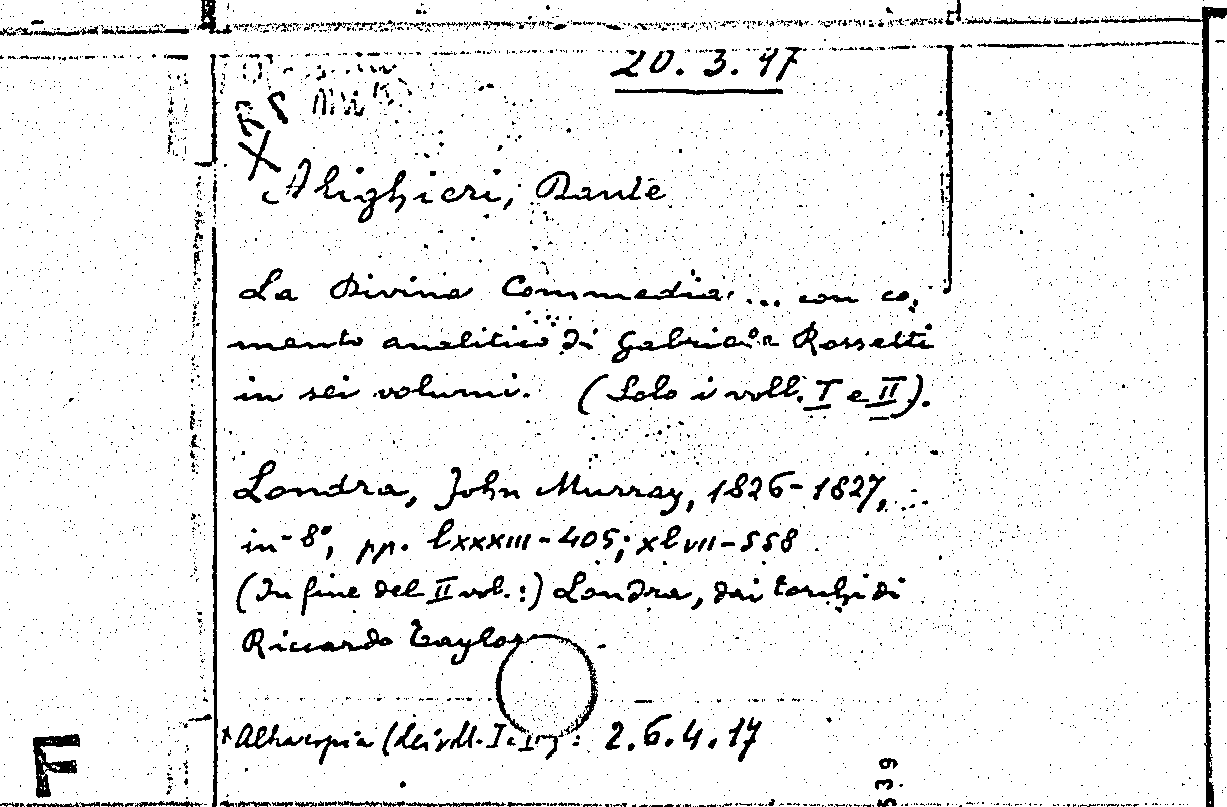 20.3.47
Alighieri, Dante
La Divina Commedia ... con co,
mento analitico di Gabriele Rossetti
in sei volumi. (Solo i voll. I e II).
Londra, John Murray, 1826-1827,
in-8°, pp. lxxxiii-405; xlvii-558
(In fine del II vol.:) Londra, dai torchi di
Riccardo Taylor
Altra copia (dei voll. I e II): 2.6.4.17
F
539